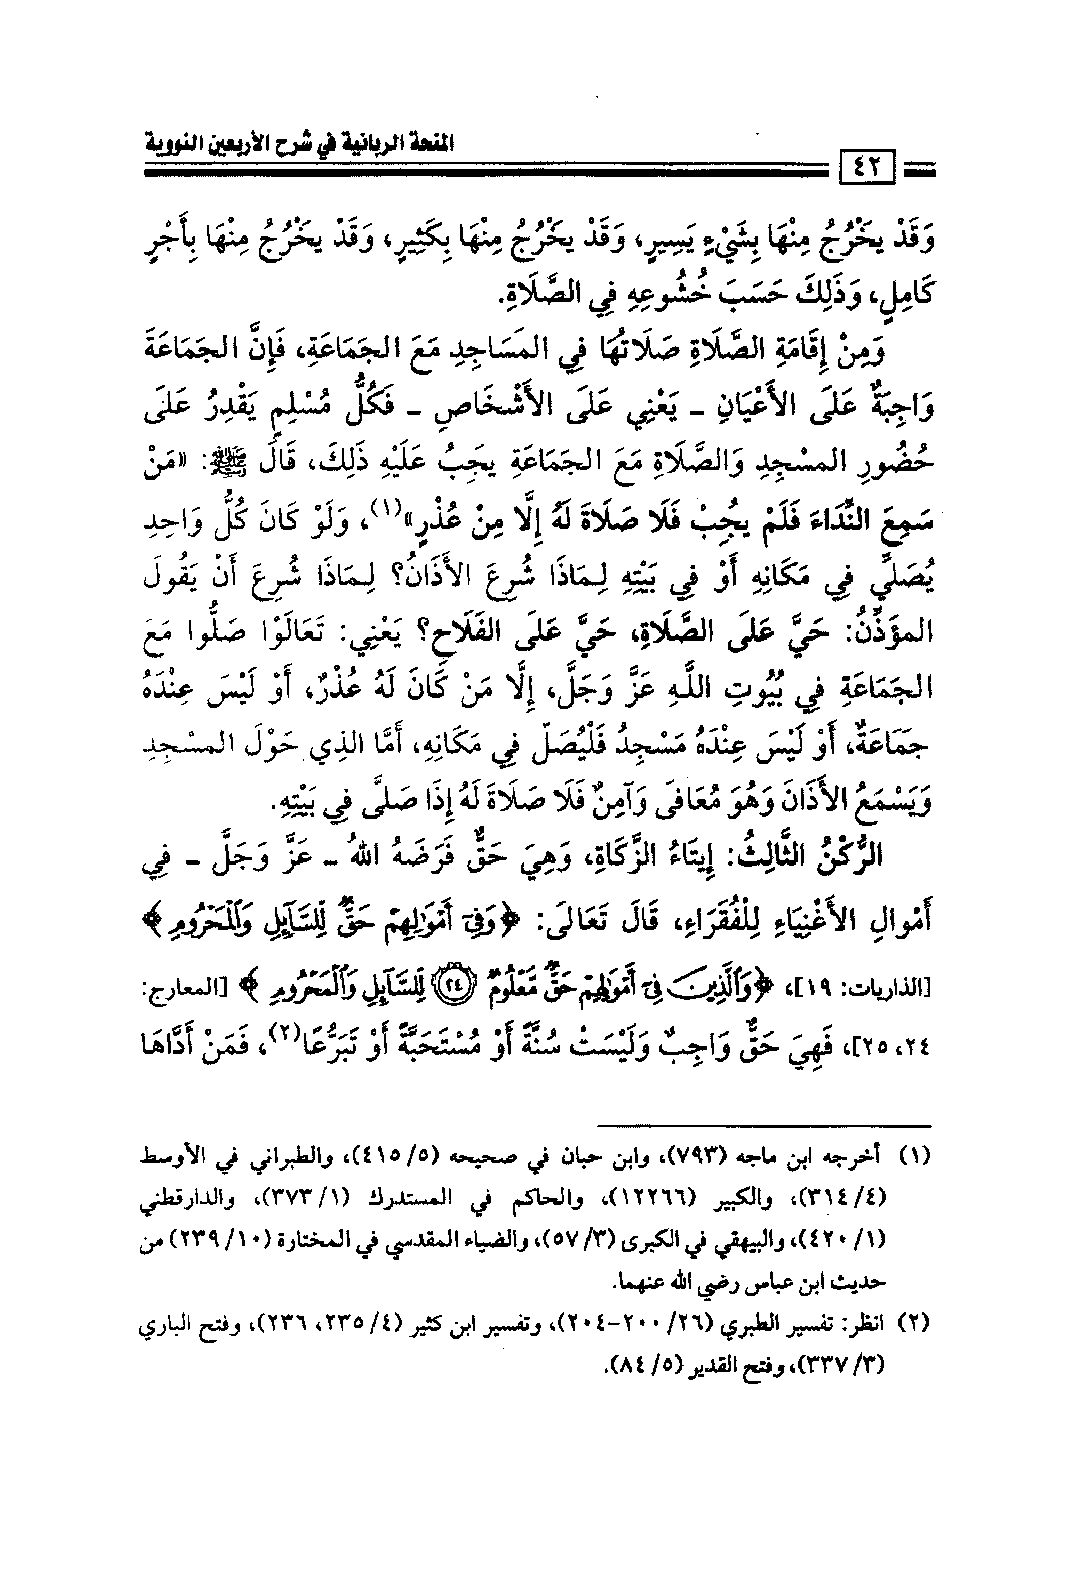 المنحة الربانية في شرح الأربعين النووية
٤٢
وَقَدْ يَخْرُجُ مِنْهَا بِشَيْءٍ يَسِيرٍ، وَقَدْ يَخْرُجُ مِنْهَا بِكَثِيرٍ، وَقَدْ يَخْرُجُ مِنْهَا بِأَجْرٍ
كَامِلٍ، وَذَلِكَ حَسَبَ خُشُوعِهِ فِي الصَّلَاةِ.
وَمِنْ إِقَامَةِ الصَّلَاةِ صَلَاتُهَا فِي المَسَاجِدِ مَعَ الجَمَاعَةِ، فَإِنَّ الجَمَاعَةَ
وَاجِبَةٌ عَلَى الأَعْيَانِ - يَعْنِي عَلَى الأَشْخَاصِ - فَكُلُّ مُسْلِمٍ يَقْدِرُ عَلَى
حُضُورِ المسْجِدِ وَالصَّلَاةِ مَعَ الجَمَاعَةِ يَجِبُ عَلَيْهِ ذَلِكَ، قَالَ ﷺ: «مَنْ
سَمِعَ النِّدَاءَ فَلَمْ يُجِبْ فَلَا صَلَاةَ لَهُ إِلَّا مِنْ عُذْرٍ»(١)، وَلَوْ كَانَ كُلُّ وَاحِدٍ
يُصَلِّي فِي مَكَانِهِ أَوْ فِي بَيْتِهِ لِمَاذَا شُرِعَ الأَذَانُ؟ لِمَاذَا شُرِعَ أَنْ يَقُولَ
المؤَذِّنُ: حَيَّ عَلَى الصَّلَاةِ، حَيَّ عَلَى الفَلَاحِ؟ يَعْنِي: تَعَالَوْا صَلُّوا مَعَ
الجَمَاعَةِ فِي بُيُوتِ اللَّهِ عَزَّ وَجَلَّ، إِلَّا مَنْ كَانَ لَهُ عُذْرٌ، أَوْ لَيْسَ عِنْدَهُ
جَمَاعَةٌ، أَوْ لَيْسَ عِنْدَهُ مَسْجِدٌ فَلْيُصَلِّ فِي مَكَانِهِ، أَمَّا الذِي حَوْلَ المسْجِدِ
وَيَسْمَعُ الأَذَانَ وَهُوَ مُعَافَى وَآمِنٌ فَلَا صَلَاةَ لَهُ إِذَا صَلَّى فِي بَيْتِهِ.
الرُّكْنُ الثَّالِثُ: إِيتَاءُ الزَّكَاةِ، وَهِيَ حَقٌّ فَرَضَهُ اللهُ - عَزَّ وَجَلَّ - فِي
أَمْوالِ الأَغْنِيَاءِ لِلْفُقَرَاءِ، قَالَ تَعَالَى: ﴿وَفِيٓ أَمۡوَٰلِهِمۡ حَقّٞ لِّلسَّآئِلِ وَٱلۡمَحۡرُومِ﴾
[الذاريات: ١٩]، ﴿وَٱلَّذِينَ فِيٓ أَمۡوَٰلِهِمۡ حَقّٞ مَّعۡلُومٞ ۝٢٤ لِّلسَّآئِلِ وَٱلۡمَحۡرُومِ﴾ [المعارج:
٢٤، ٢٥]، فَهِيَ حَقٌّ وَاجِبٌ وَلَيْسَتْ سُنَّةً أَوْ مُسْتَحَبَّةً أَوْ تَبَرُّعًا(٢)، فَمَنْ أَدَّاهَا
(١) أخرجه ابن ماجه (٧٩٣)، وابن حبان في صحيحه (٥/ ٤١٥)، والطبراني في الأوسط
(٤/ ٣١٤)، والكبير (١٢٢٦٦)، والحاكم في المستدرك (١/ ٣٧٣)، والدارقطني
(١/ ٤٢٠)، والبيهقي في الكبرى (٣/ ٥٧)، والضياء المقدسي في المختارة (١٠/ ٢٣٩) من
حديث ابن عباس رضي الله عنهما.
(٢) انظر: تفسير الطبري (٢٦/ ٢٠٠-٢٠٤)، وتفسير ابن كثير (٤/ ٢٣٥، ٢٣٦)، وفتح الباري
(٣/ ٣٣٧)، وفتح القدير (٥/ ٨٤).